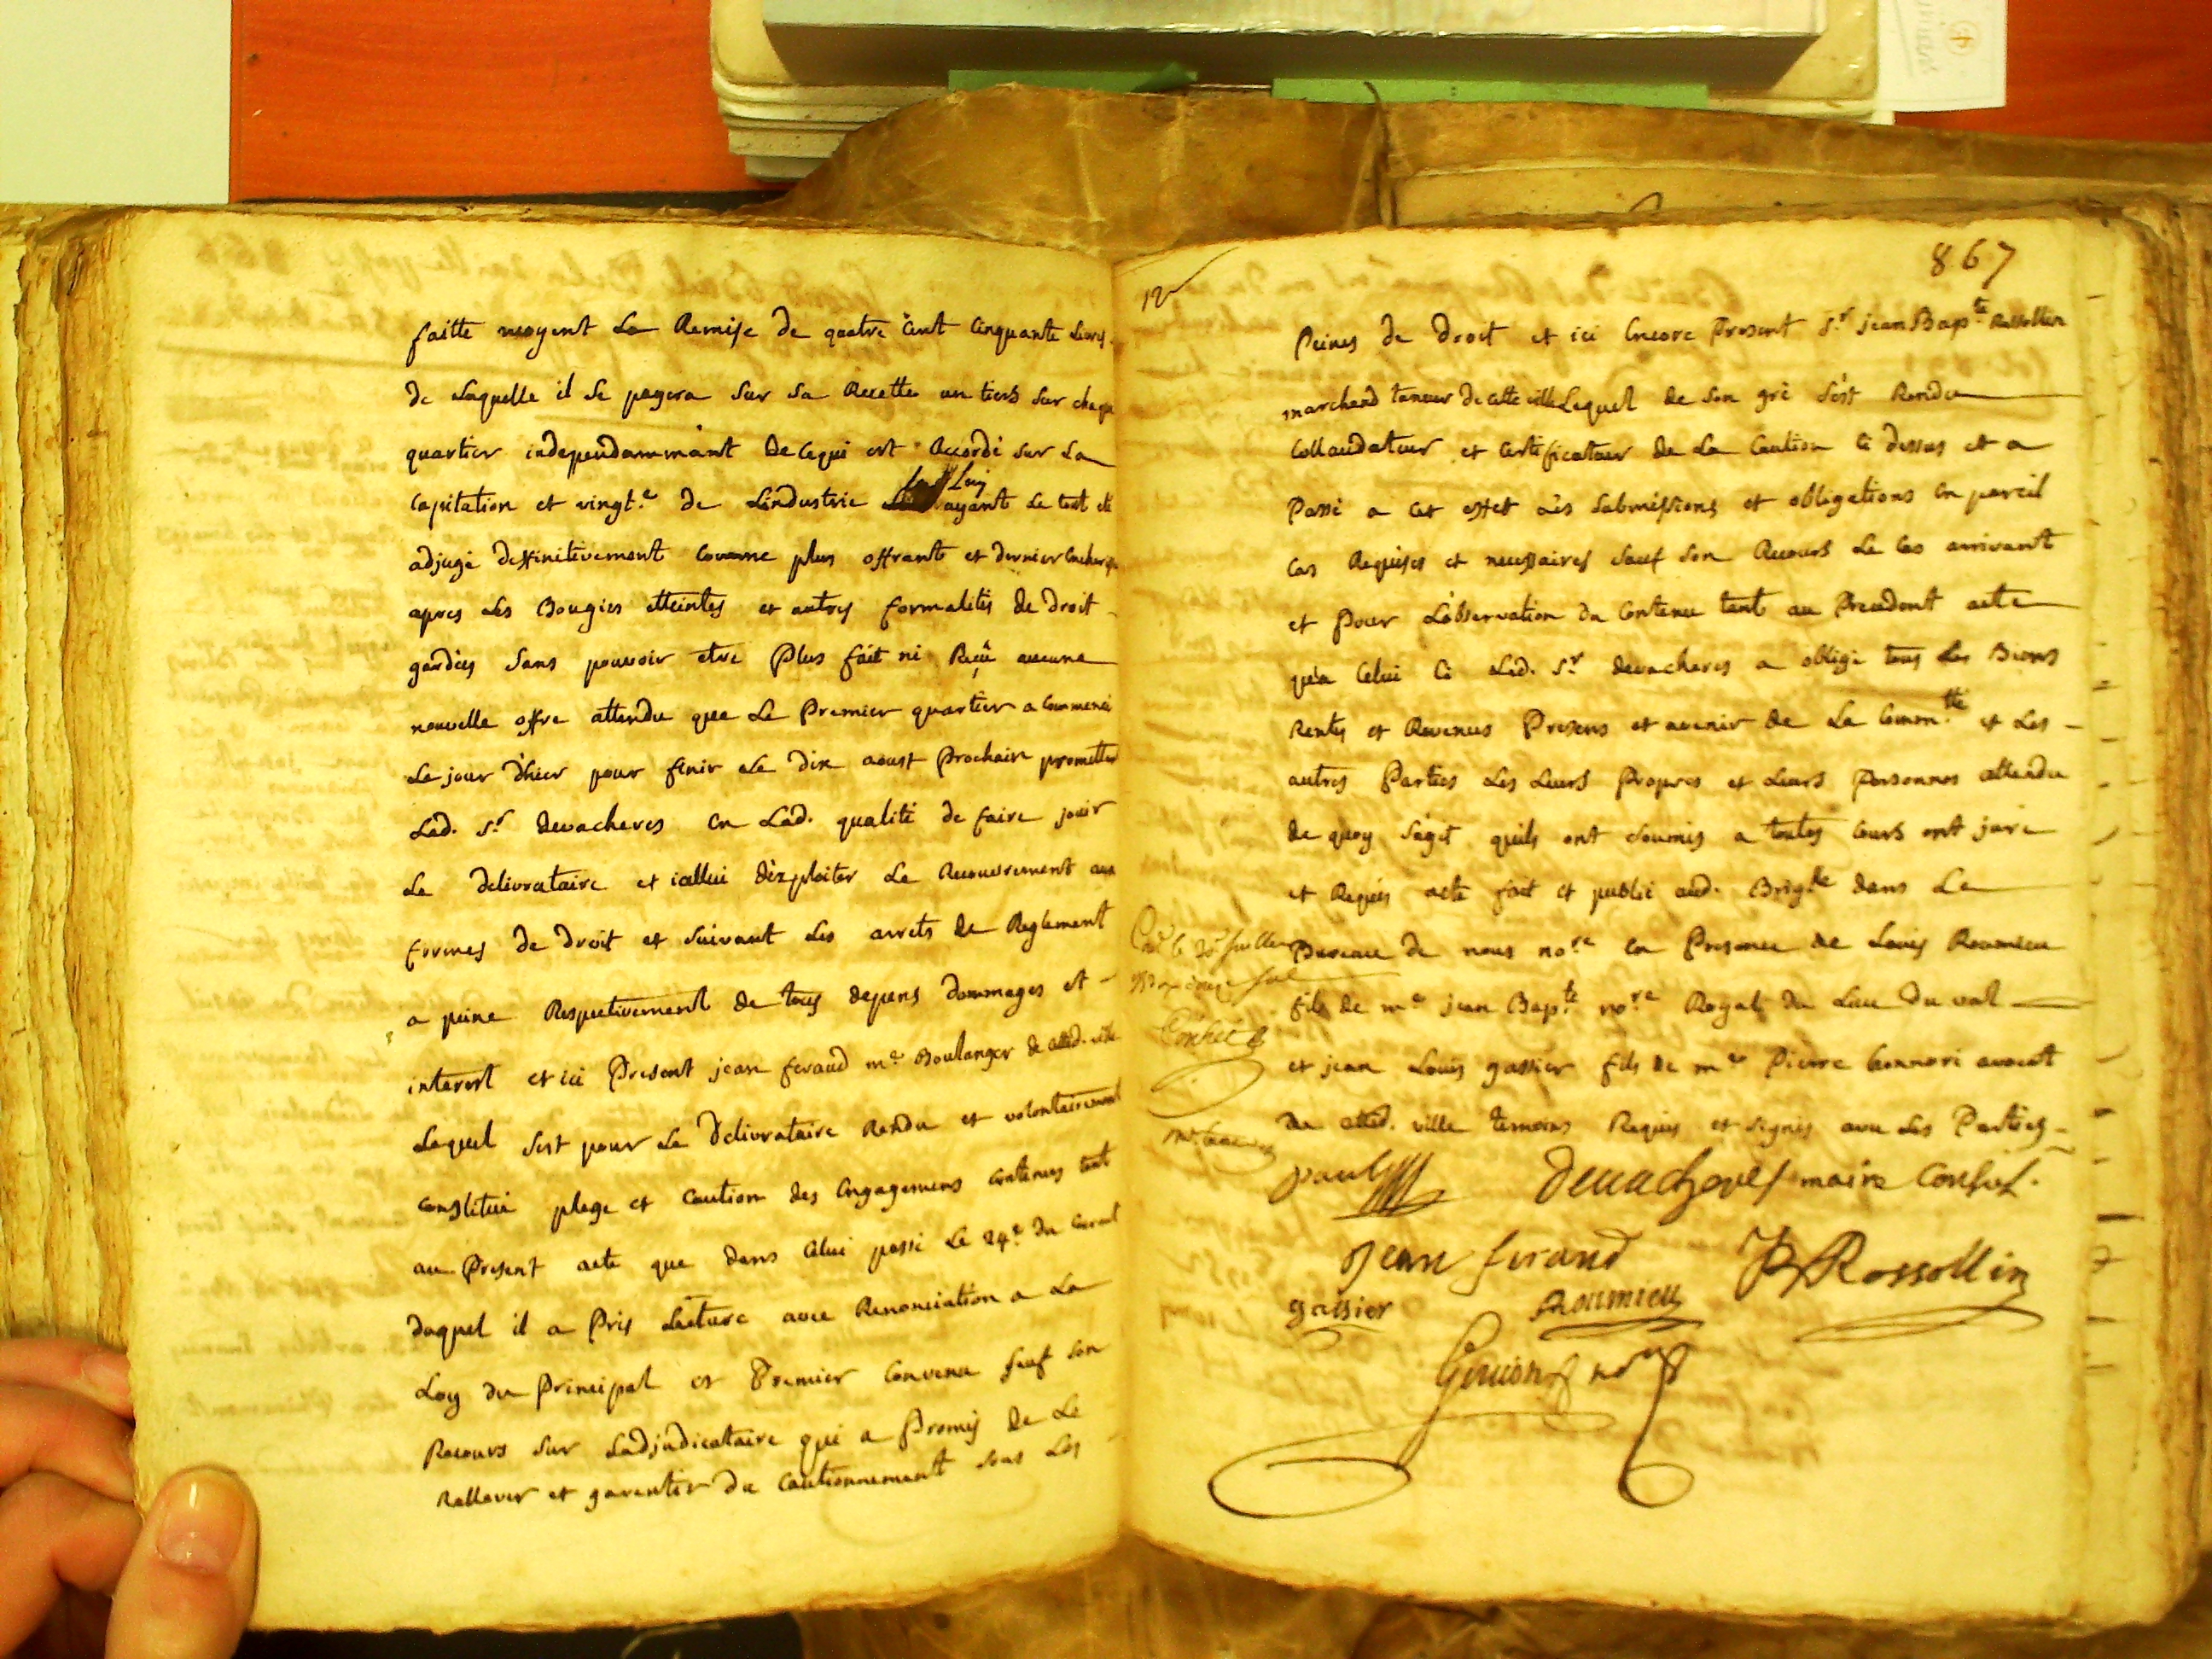 faitte moyent La Remise de quatre Cent Cinquante Livres
de Laquelle il Se payera Sur Sa Recette un tiers Sur chaque
quartier independammant de Cequi est Accordé Sur La
Capitation et vingt.e de Lindustrie Luy ayant Le tout eté
adjugé deffinitivement Comme plus offrant et dernier
apres Les Bougies etteintes et autres formalités de droit
gardées Sans pouvoir etre Plus fait ni Reçû aucune
nouvelle offre attendu que Le Premier quartier a Commencé
Le jour d'hier pour finir Le dix aoust Prochain promettant
Lad. Sr devacheres en Lad. qualité de faire jouir
Le delivrataire et icellui d'exploiter Le Recouvrement aux
formes de droit et Suivant Les arrets de Reglement
a peine Respectivement de tous depens dommages et
interest et ici Present jean feraud me Boulanger de cetted. ville
Lequel s'est pour Le delivrataire Rendu et volontairement
Constitué plege et Caution des Engagemens Contenus tant
au Present acte que dans Celui passé Le 24e du Courant
duquel il a Pris Lecture avec Renonciation a La
Loy du Principal et Premier Convenu Sauf Son
Recours Sur Ladjudicataire qui a Promis de Le
Rellever et garentir du Cautionnement Sous Les
12
867
Peines de Droit et ici Encore Present Sr jean Bapte Rossollin
marchand taneur de cette ville Lequel de Son gré S'est Rendu
Collaudateur et Certificateur de La Caution Ci dessus et a
Passé a Cet effet Les Submissions et obligations En pareil
Cas Requises et necessaires Sauf Son Recours Le Cas arrivant
et Pour L'observation du Contenu tant au Precedent acte
qu'a Celui Ci Led. Sr devacheres a obligé tous Les Biens
Rentes et Revenus Presens et avenir de La Commté et Les
autres Parties Les Leurs Propres et Leurs Personnes attendu
de quoy S'agit quils ont Soumis a toutes Cours ont juré
et Requis acte fait et publié aud. Brigle dans Le
Bureau de nous nore En Presence de Louis Roumieu
fils de me jean Bapte nore Royal du Lieu du val
et jean Louis gassier fils de me Pierre honnoré avocat
de cetted. ville temoins Requis et Signés avec Les Parties
paul Devacheres maire Consul.
Jean feraud JB Rossollin
gassier Roumieu
nore